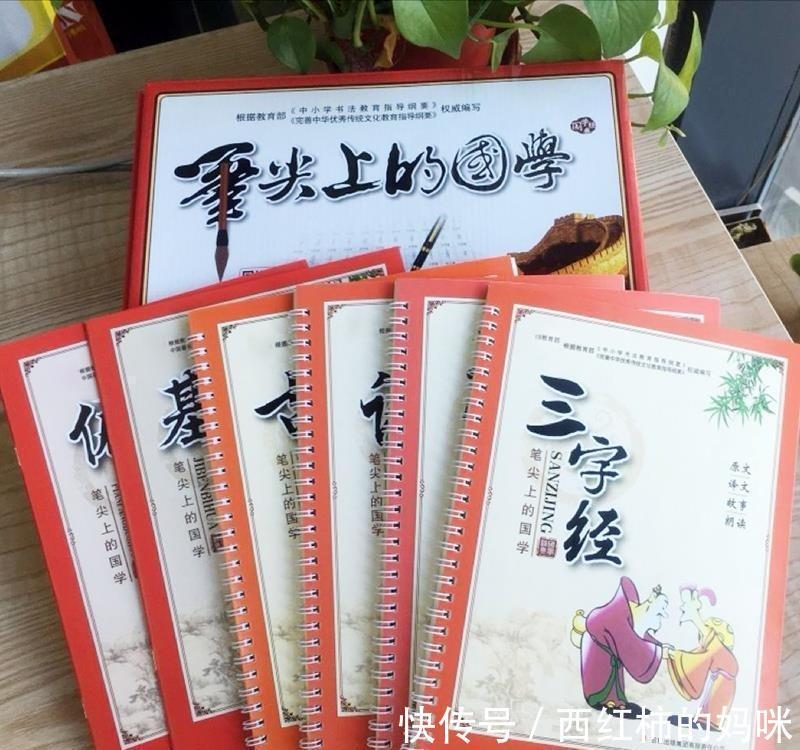 根据教育部《中小学书法教育指导纲要》权威编写
《完善中华优秀传统文化教育指导纲要》
笔尖上的国学
基
笔尖上的国学
笔尖上的国学
笔尖上的国学
笔尖上的国学
根据教育部《中小学书法教育指导纲要》权威编写
《完善中华优秀传统文化教育指导纲要》
三字经
SANZIJING
笔尖上的国学
原文
译文
故事
朗读
快传号 / 西红柿的妈咪